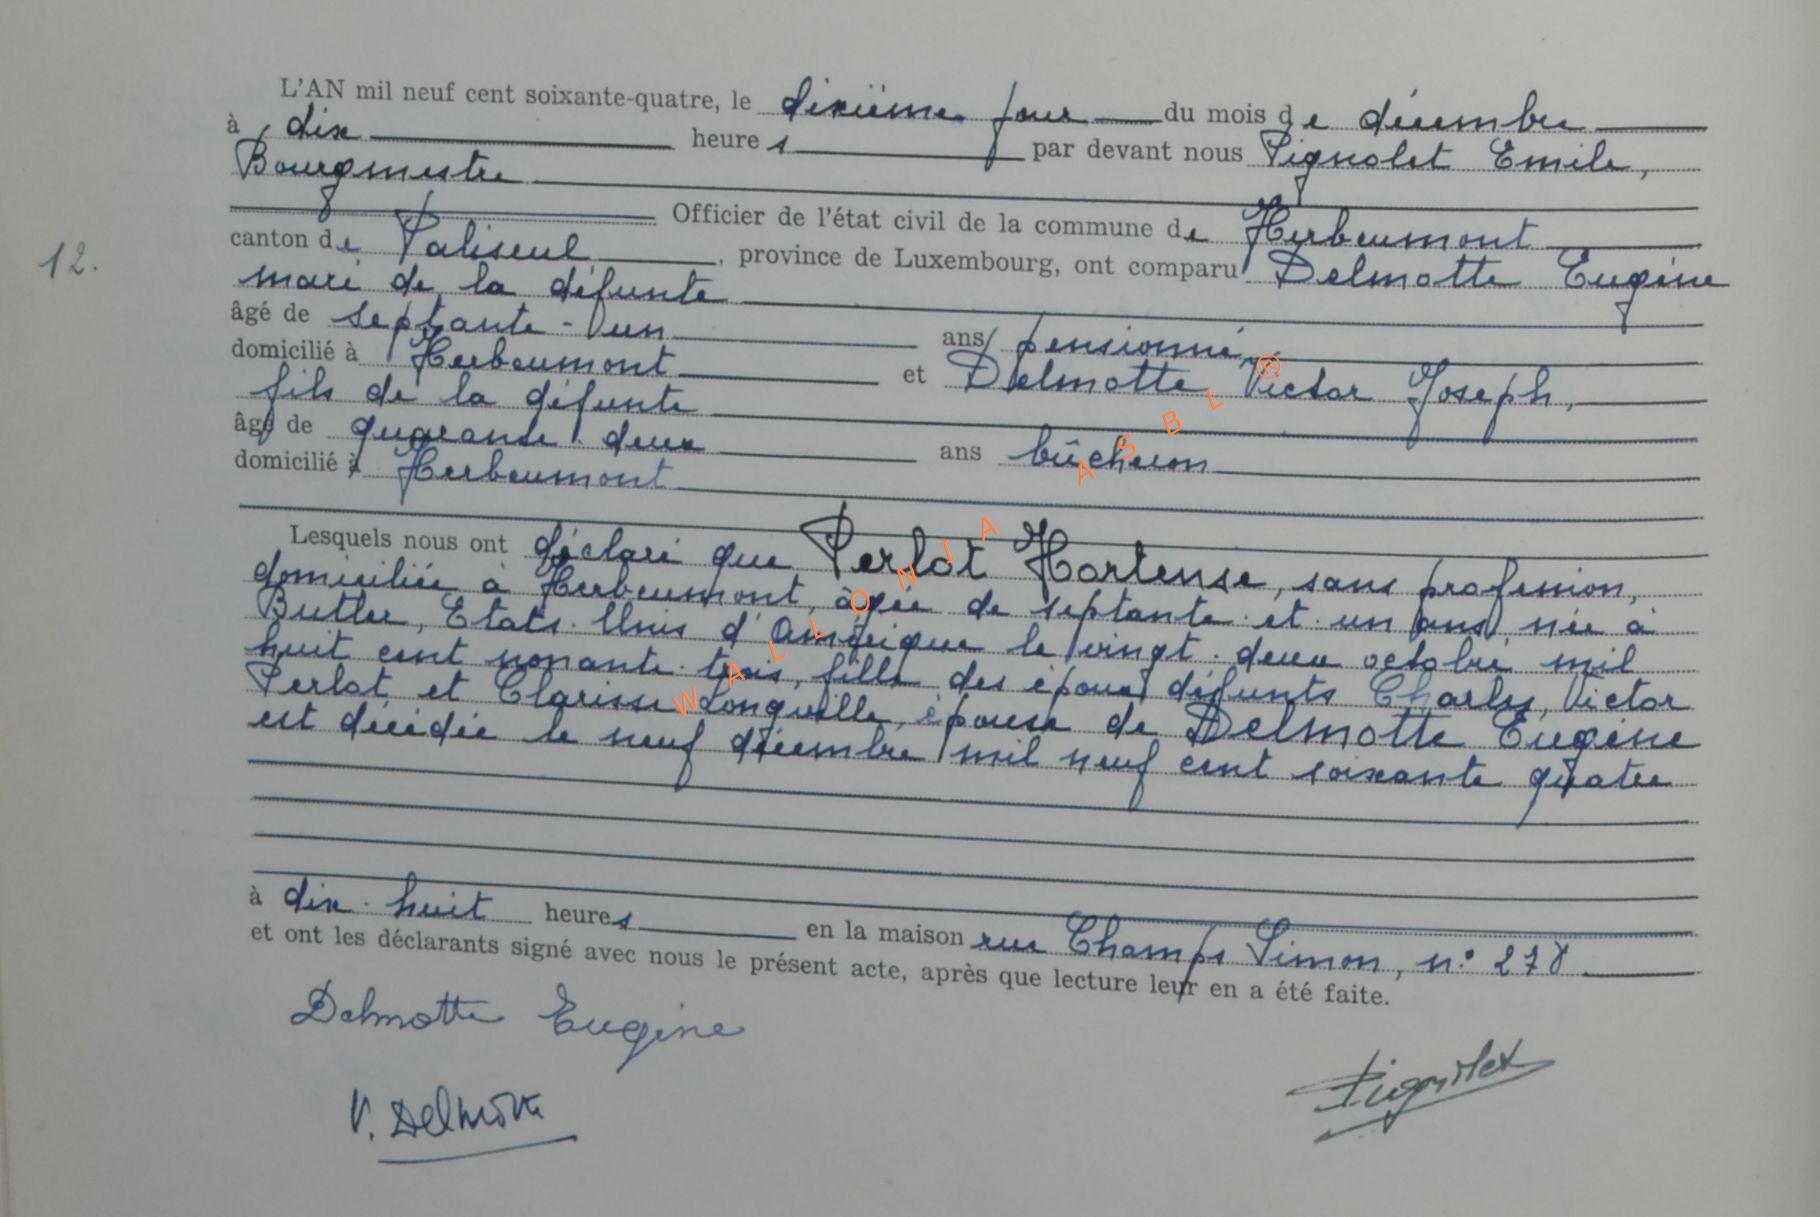 L'AN mil neuf cent soixante-quatre, le dixième jour du mois de décembre
à dix heures par devant nous Pignolet Emile,
Bourgmestre
Officier de l'état civil de la commune de Herbeumont
12.
canton de Paliseul, province de Luxembourg, ont comparu Delmotte Eugène
mari de la défunte
âgé de septante-un ans pensionné,
domicilié à Herbeumont et Delmotte Victor Joseph,
fils de la défunte
âgé de quarante-deux ans bûcheron
domicilié à Herbeumont
Lesquels nous ont déclaré que Perlot Hortense, sans profession,
domiciliée à Herbeumont, âgée de septante et un ans, née à
Butler, Etats-Unis d'Amérique le vingt-deux octobre mil
huit cent nonante-trois, fille des époux défunts Charles, Victor
Perlot et Clarisse Longville, épouse de Delmotte Eugène
est décédée le neuf décembre mil neuf cent soixante quatre
à dix-huit heures en la maison rue Champs Simon, n° 278
et ont les déclarants signé avec nous le présent acte, après que lecture leur en a été faite.
Delmotte Eugène
V. Delmotte
Pignolet
WALLONIA ASBL ®